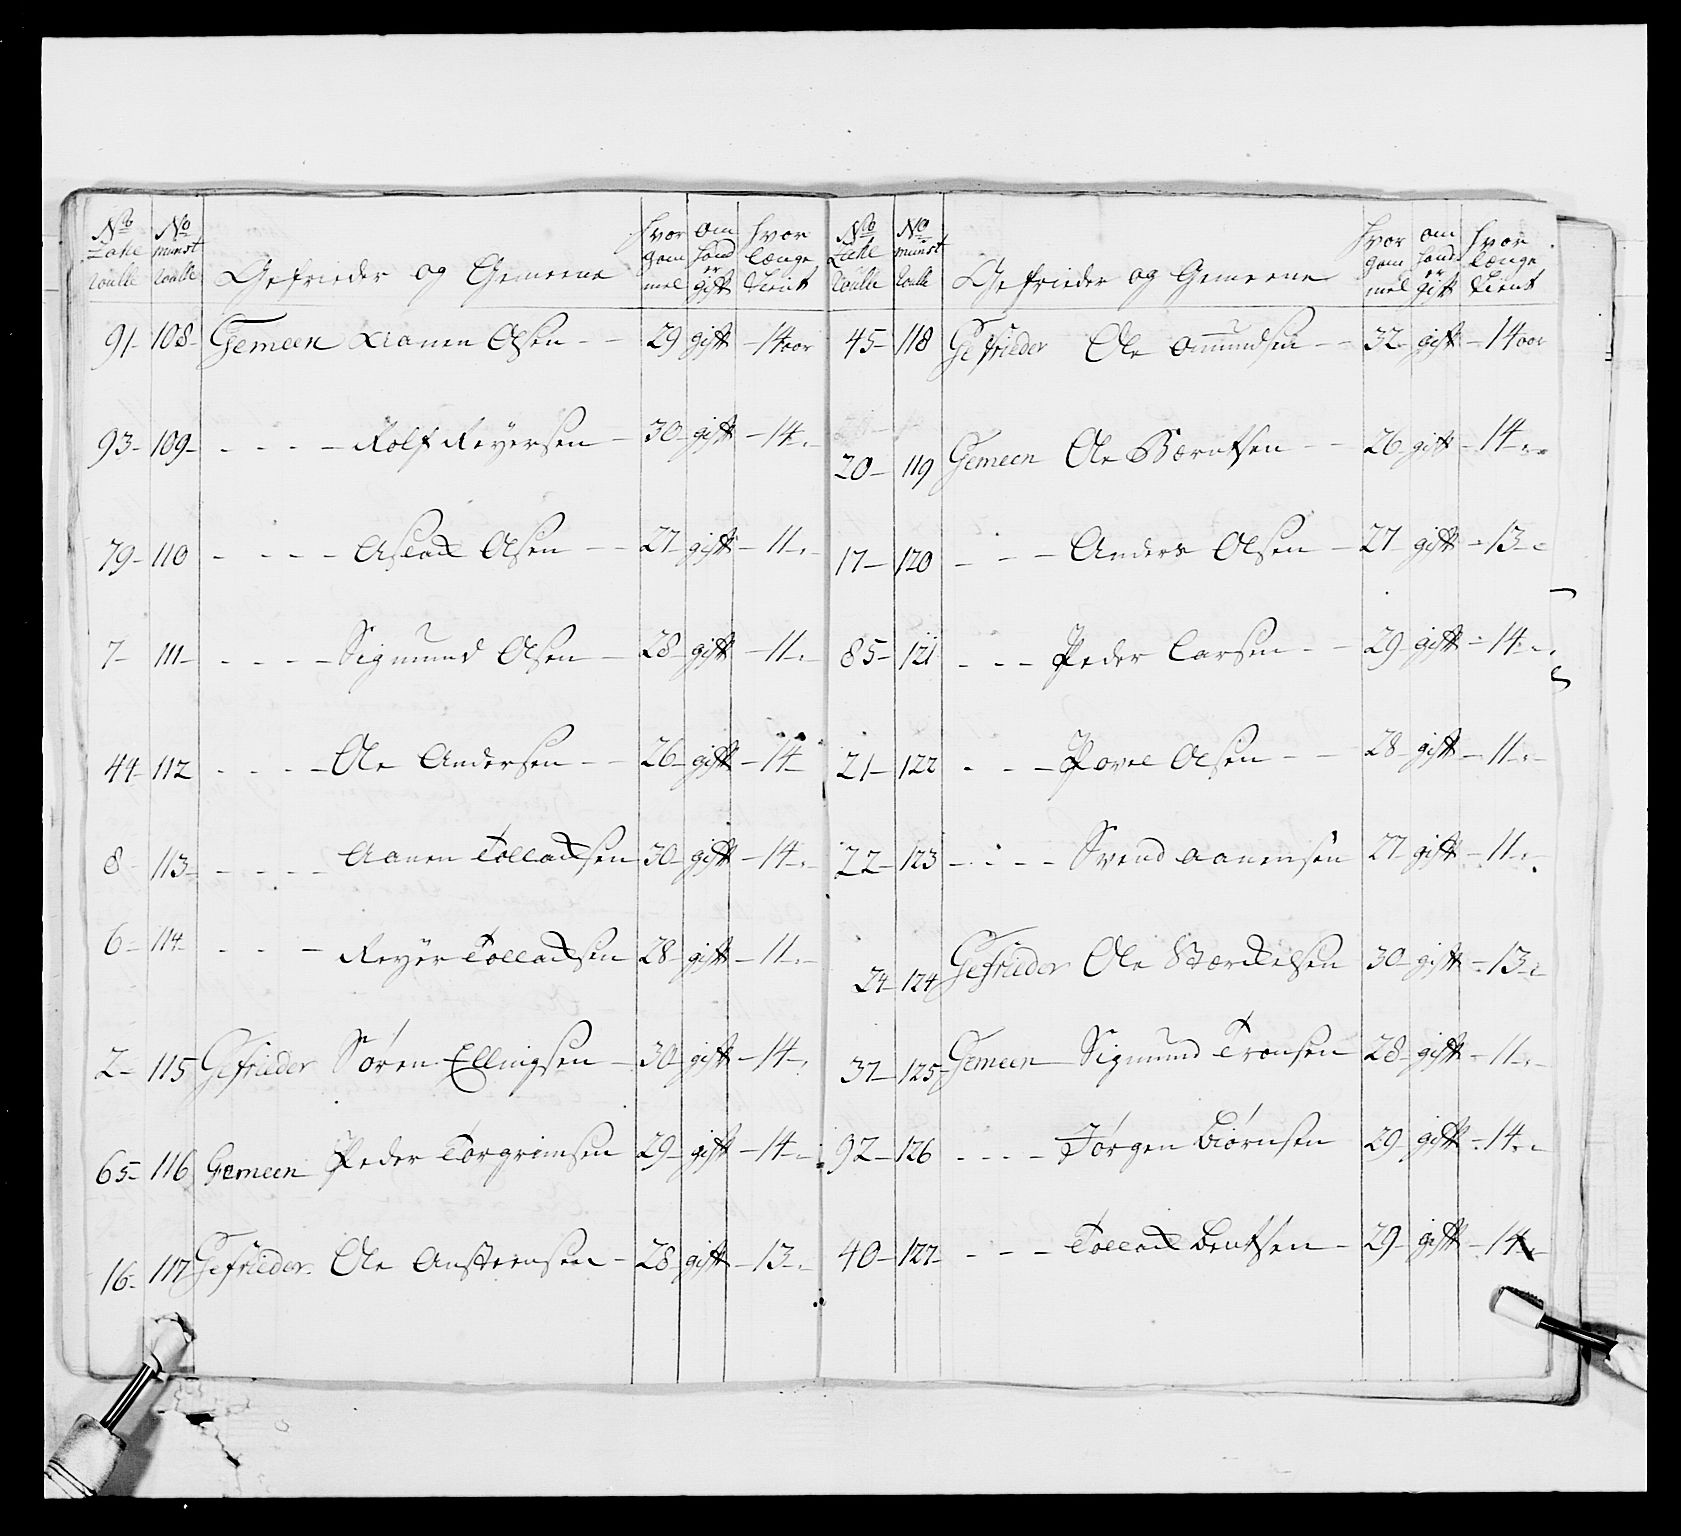 No No Gefrieder og Gemeene hvor gam mel om hand er gift hvor længe tient
91 - 108 - Gemeen Aanen Olsen - - 29 gift - 14 aar
93 - 109 - - - - - Rolf Reyersen - 30 - gift - 14 -
79 - 110 - - - - Aslack Olsen - - 27 gift - 11 -
7 - 111 - - - - - Sigmund Olsen - - 28 - gift - 11 -
44 - 112 - - - - Ole Andersen - - 26 - gift - 14 -
8 - 113 - - - - - Aanen Tollacksen 30 - gift - 14 -
6 - 114 - - - - Reyer Tollacksen 28 - gift - 11 -
2 - 115 Gefrieder Søren Ellingsen - 30 - gift - 14 -
65 - 116 Gemeen Peder Torgrimsen 29 - gift - 14 -
16 - 117 Gefrieder Ole Anstensen - 28 gift - 13 -
No No Gefrieder og Gemeene hvor gam mel om hand er gift hvor længe tient
45 - 118 Gefrieder Ole Omundsen - - 32 - gift - 14 aar
20 - 119 Gemeen Ole Bærntsen - - 26 - gift - 14 -
17 - 120 - - - Anders Olsen - 27 gift - 13 -
85 - 121 - - - Peder Larsen - - 29 - gift - 14 -
21 - 122 - - - Povel Olsen - - 28 - gift - 11 -
22 - 123 - - - - Svend Aanensen 27 gift - 11 -
24 - 124 Gefrieder Ole Stærckelsen 30 - gift - 13 -
37 - 125 - Gemeen Sigmund Tronsen 28 - gift - 11 -
92 - 126 - - - - Jørgen Biørnsen 29 gift - 14 -
40 - 127 - - - - Tollack Bentsen - 29 - gift - 14 -